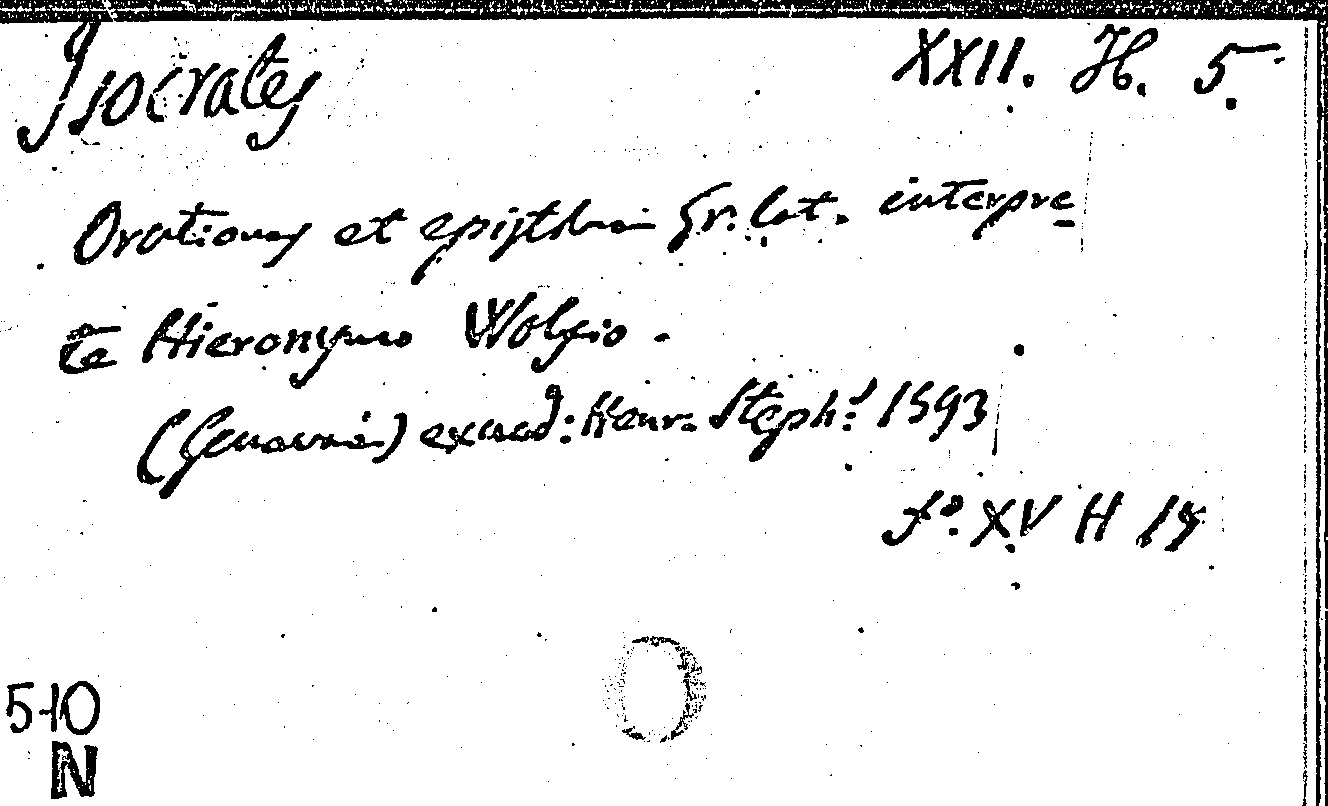 Isocrates XXII. H. 5.
Orationes et epistolae Gr. lat. interpre
te Hieronymo Wolfio.
(Genavae) excud: Henr. Steph: 1593
fo. XV H
5-10
N